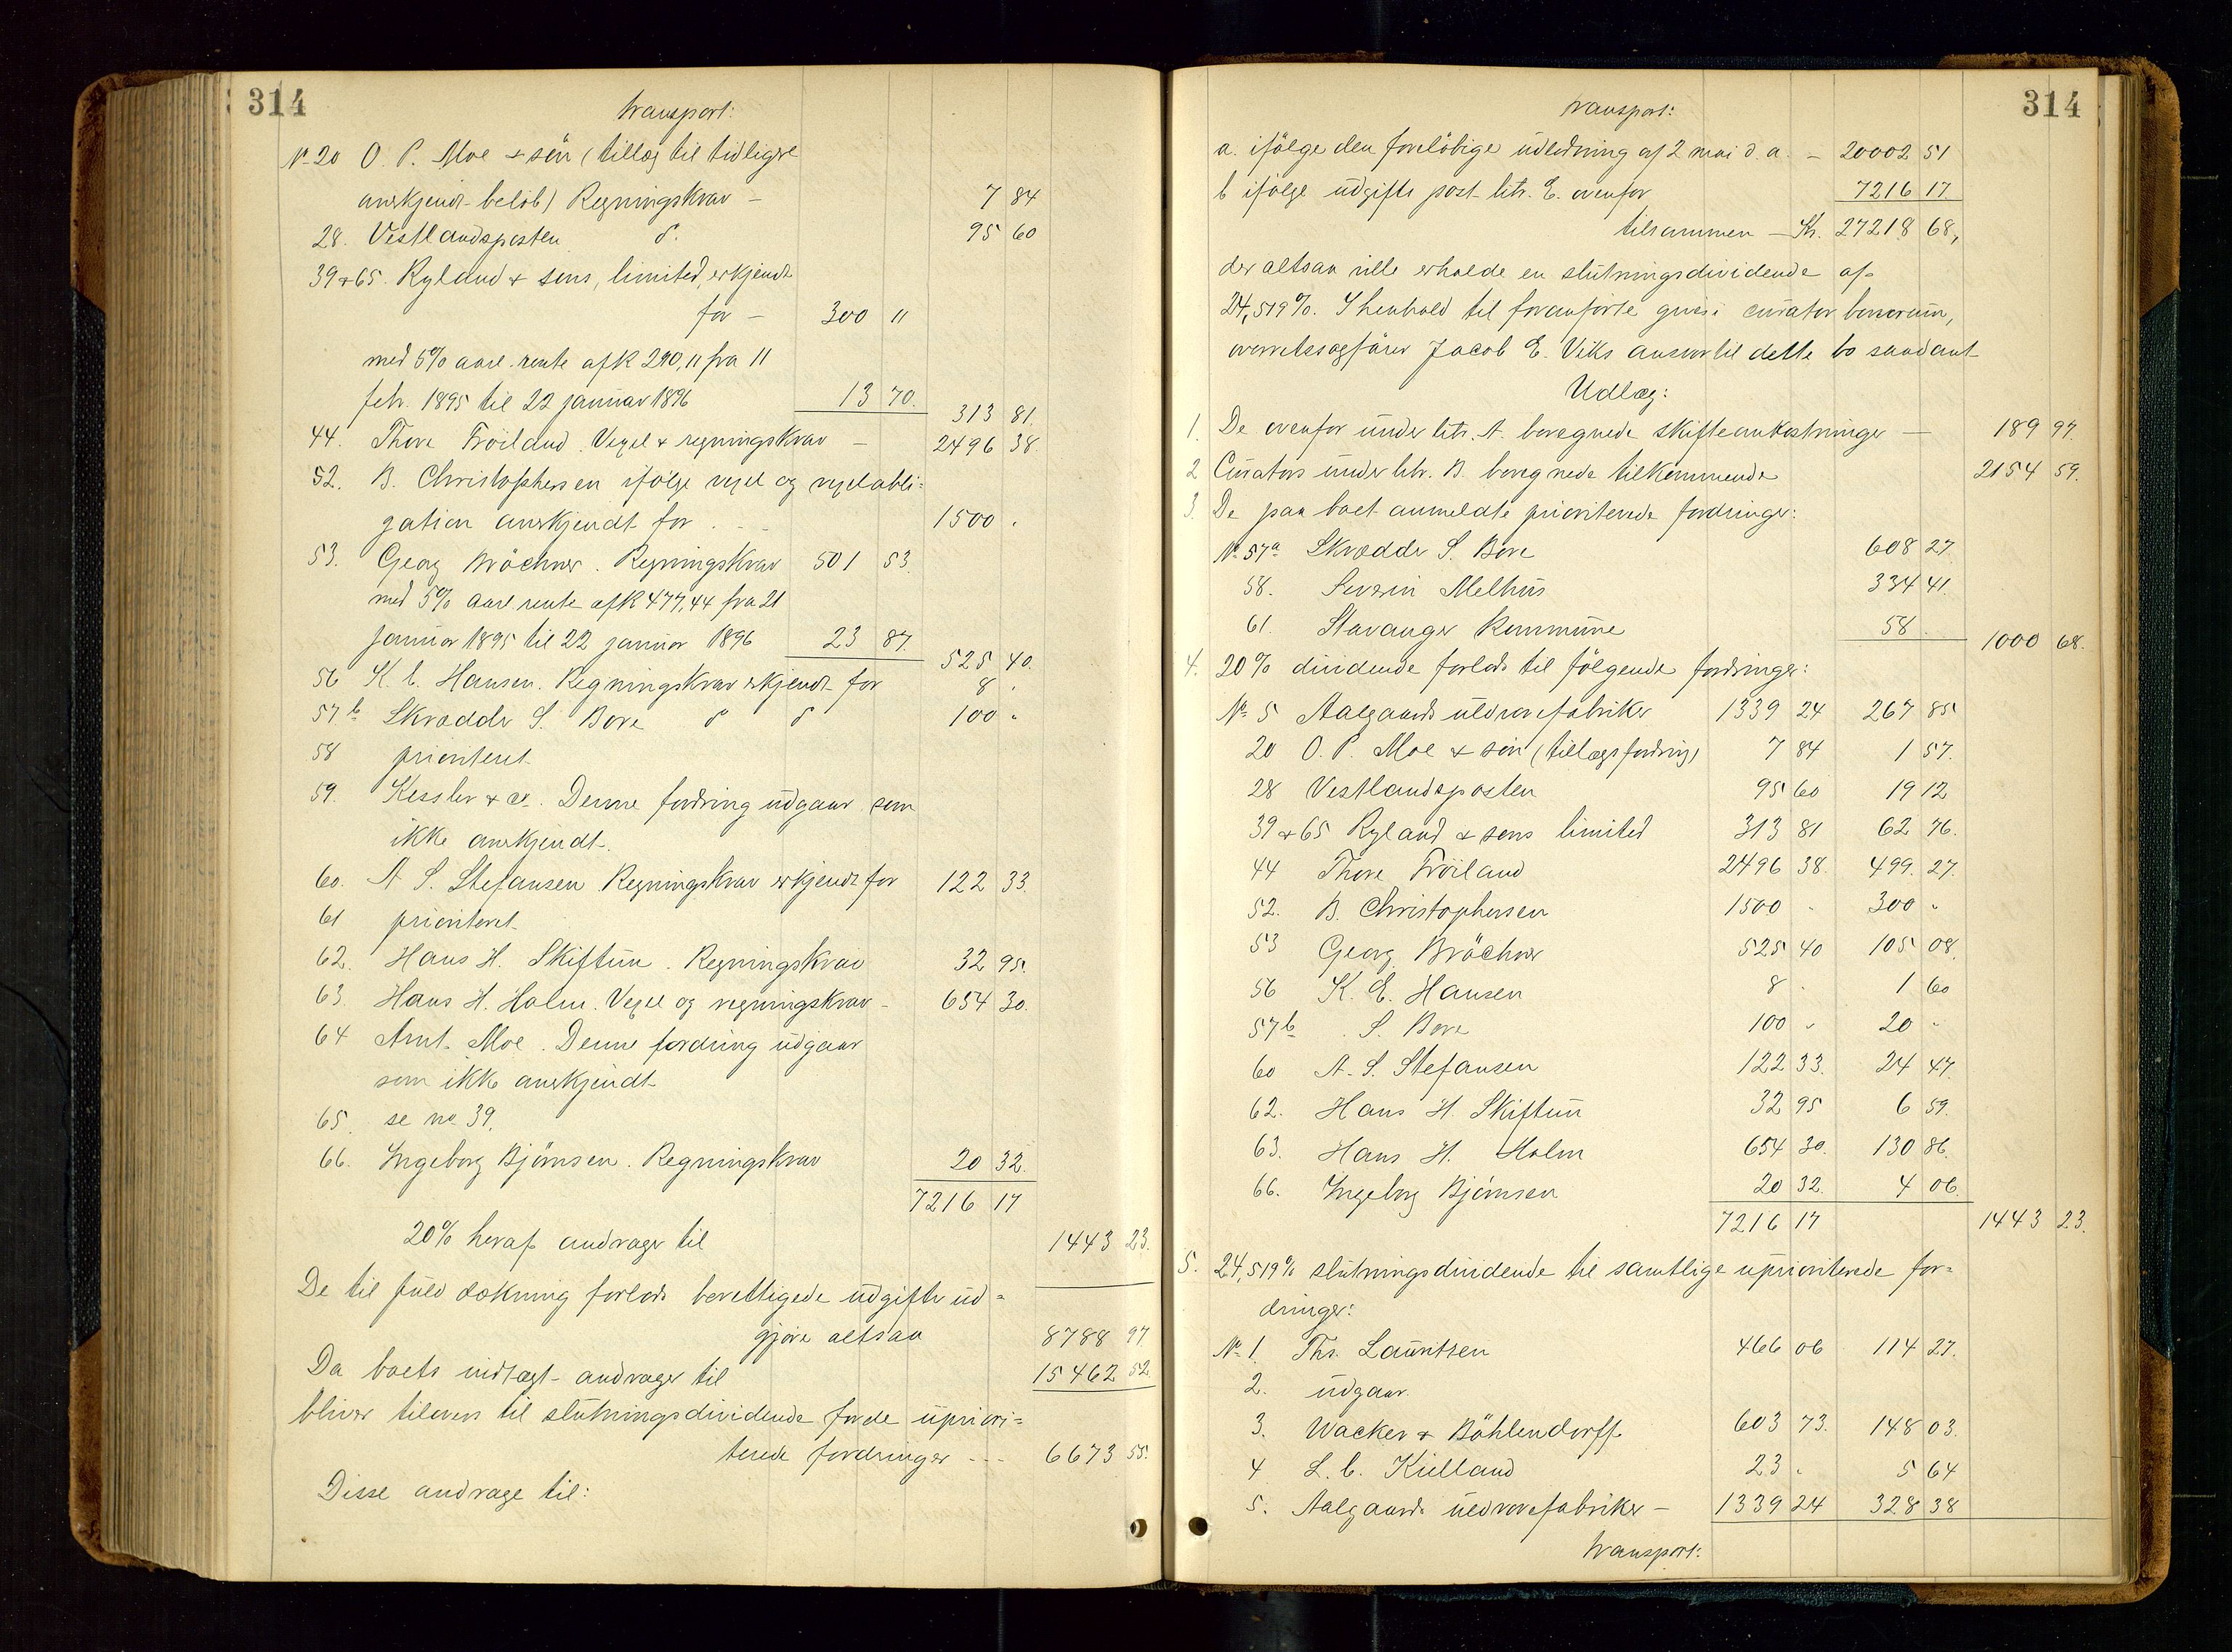 314
transport:
No 20 O. P. Moe & sön (tillæg til tidligere
anerkjendt beløb) Regningskrav — 7 84
28. Vestlandsposten d. 95 60
39 & 65. Ryland & sons, limited, erkjendt
for — 300 11
med 5% aarl. rente af K 290,11 fra 11
febr. 1895 til 22 januar 1896 13 70. 313 81.
44. Thore Fröiland. Vexel & regningskrav — 2496 38.
52. B. Christophersen ifölge vexel og vexelobli=
gation anerkjendt for . - - 1500 .
53. Georg Bröchner. Regningskrav 501 53.
med 5% aarl rente af K 477,44 fra 21
januar 1895 til 22 januar 1896 23 87. 525 40.
56 K. E. Hansen. Regningskrav erkjendt for 8 .
57b Skrædder S. Bore d d 100 "
58 prioriteret
59. Kessler & co. Denne fordring udgaar som
ikke anerkjendt.
60. A S. Stefansen Regningskrav erkjendt for 122 33.
61 prioriteret
62. Hans H. Skiftun. Regningskrav 32 95.
63. Hans H. Holm. Vexel og regningskrav - 654 30.
64 Arnt Moe. Denne fordring udgaar
som ikke anerkjendt
65. se no 39.
66. Ingeborg Bjørnsen. Regningskrav 20 32.
7216 17
20% heraf andrager til 1443 23.
De til fuld dækning forlods berettigede udgifter ud=
gjøre altsaa 8788 97
Da boets indtægt andrager til 15462 52.
bliver tilovers til slutningsdividende for de upriori=
terede fordringer - - - 6673 55.
Disse andrage til:
314
transport:
a. ifölge den foreløbige udlodning af 2 mai d. a. — 20002 51
b ifölge udgifts post litr. E. ovenfor 7216 17
tilsammen — Kr. 27218 68,
der altsaa ville erholde en slutningsdividende af
24,519%. I henhold til foranførte gives i curator bonorum,
overretssagfører Jacob E. Viks ansvar til dette bo saadant
Udlæg:
1. De ovenfor under litr. A. beregnede skifteomkostninger — 189 97.
2 Curators under litr. B. beregnede tilkommende 2154 59.
3. De paa boet anmeldte prioriterede fordringer:
No 57a Skrædder S. Bore 608 27
58. Severin Melhus 334 41.
61. Stavanger Kommune 58 . 1000 68.
4. 20% dividende forlods til følgende fordringer:
No 5 Aalgaards uldvarefabriker 1339 24 267 85
20 O. P. Moe & sön (tillægsfordring) 7 84 1 57.
28 Vestlandsposten 95 60 19 12
39 & 65 Ryland & sons limited 313 81 62 76.
44 Thore Fröiland 2496 38. 499. 27.
52. B. Christophersen 1500 . 300 "
53 Georg Bröchner 525 40 105 08.
56 K. E. Hansen 8 . 1 60
57b . S. Bore 100 " 20 "
60 A. S. Stefansen 122 33. 24 47.
62. Hans H. Skiftun 32 95 6 59.
63. Hans H. Holm 654 30. 130 86.
66. Ingeborg Bjørnsen 20 32. 4 06.
7216 17 1443 23.
5. 24,519% slutningsdividende til samtlige uprioriterede for=
dringer:
No 1. Ths. Lauritsen 466 06 114 27.
2. udgaar.
3. Wacker & Böhlendorff 603 73. 148 03.
4 L. C. Kielland 23 . 5 64
5. Aalgaards uldvarefabriker — 1339 24 328 38
transport: